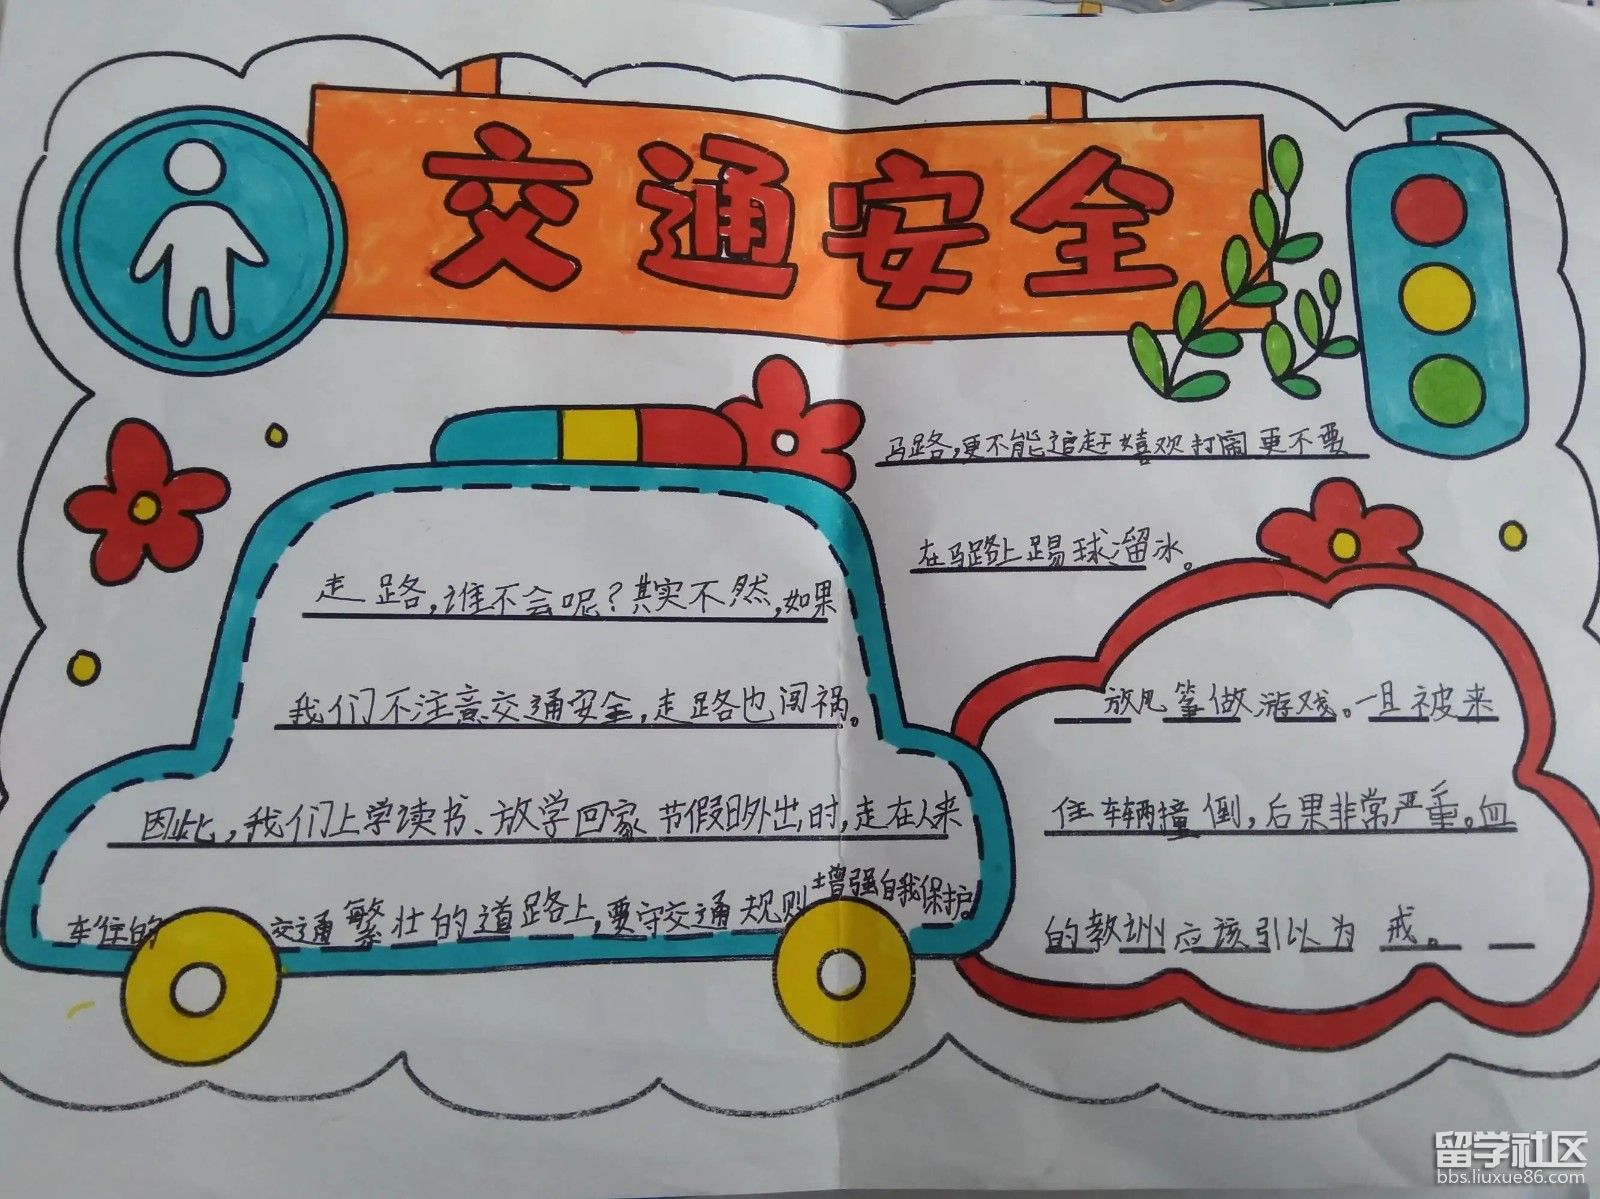 交通安全
走路,谁不会呢?其实不然,如果
我们不注意交通安全,走路也闯祸。
因此,我们上学读书、放学回家节假日外出时,走在人来
车往的交通繁壮的道路上,要守交通规则增强自我保护。
马路,更不能追赶嬉欢打闹更不要
在马路上踢球溜冰。
放风筝做游戏。一旦被来
住车辆撞倒,后果非常严重。血
的教训应该引以为戒。
留学社区
bbs.liuxue86.com